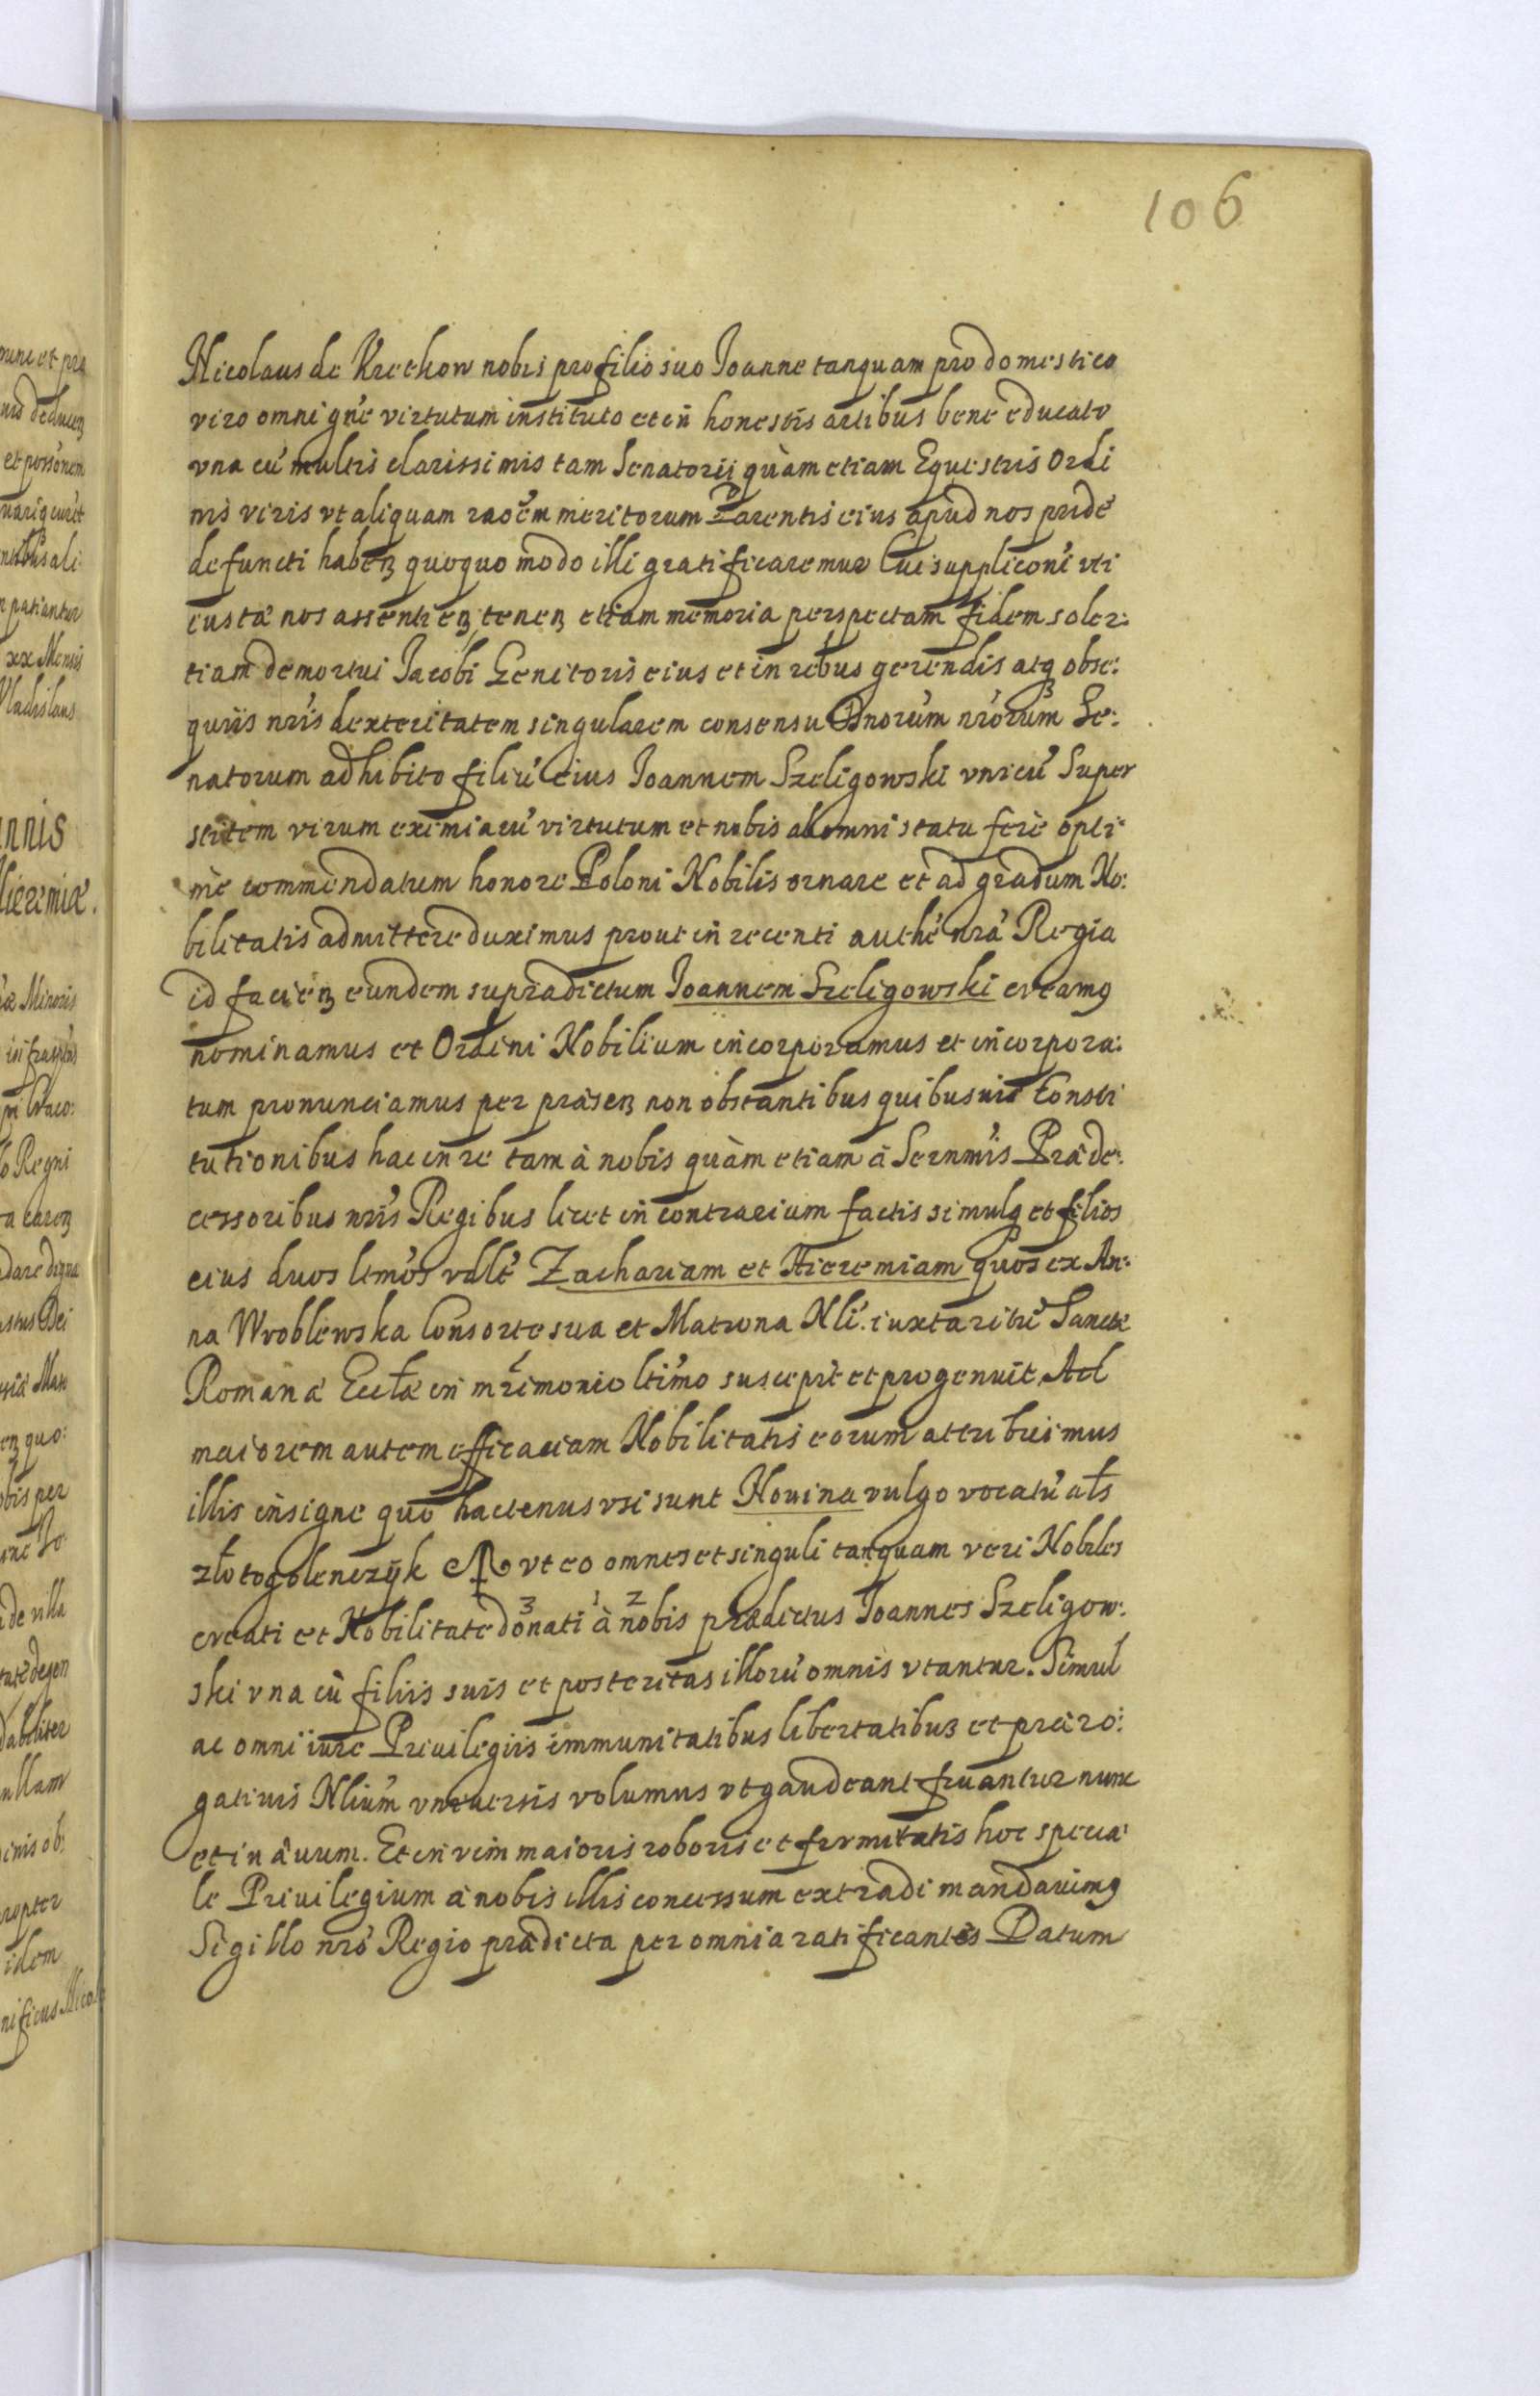 106
Nicolaus de Krethow nobis pro filio suo Joanne tanquam pro domestico
viro omni gñe virtutum instituto et in honestis artibus bene educato
vna cũ multis clarissimis tam Senatorij quàm etiam Equestris Ordi
nis viris vt aliquam raoẽm meritorum Parentis eius apud nos pridẽ
defuncti habeꝫ quoquo modo illi gratificaremur Cui suppliconi vti
iustæ nos assentieꝫ, teneꝫ etiam memoria perspectam fidem soler:
tiam demortui Jacobi Genitoris eius et in rebus gerendis atqꝫ obse:
quiis nr̃is dexteritatem singularem consensu Dnorum nr̃orum Se:
natorum adhibito filiũ eius Joannem Szeligowski vnicũ Super
stitem virum eximiarũ virtutum et nobis ab omni statu ferè opti
mè commendatum honore Poloni Nobilis ornare et ad gradum No:
bilitatis admittere duximus prout in recenti authẽ nr̃a Regia
id facieꝫ eundem supradictum Joannem Szeligowski creamꝰ
nominamus et Ordini Nobilium incorporamus et incorpora:
tum pronunciamus per præseꝫ non obstantibus quibusuis Consti
tutionibus hac in re tam à nobis quàm etiam à Sernm̃is Præde:
cessoribus nr̃is Regibus licet in contrarium factis simulqꝫ et filios
eius duos ltm̃os vdlt̃ Zachariam et Hieremiam quos ex An:
na Wroblewska Consorte sua et Matrona Nli. iuxta ritũ Sanctæ
Romanæ Eccłæ in mr̃imonio ltim̃o suscepit et progenuit, Ad
maiorem autem efficaciam Nobilitatis eorum attribuimus
illis insigne quo hactenus vsi sunt Nouina vulgo vocatũ ałs
złotogolenczÿk vt eo omnes et singuli tanquam veri Nobiles
creati et Nobilitate donati à nobis prædictus Joannes Szeligow:
3 1 2
ski vna cũ filiis suis et posteritas illorũ omnis vtantur. Simul
ac omni iure Priuilegiis immunitatibus libertatibus et præro:
gatiuis Nliũm vniuersis volumus vt gaudeant fruantur nunc
et in æuum. Et in vim maioris roboris et firmitatis hoc specia
le Priuilegium à nobis illis concessum extradi mandauimꝰ
Sigillo nr̃o Regio prædicta per omnia ratificantes Datum